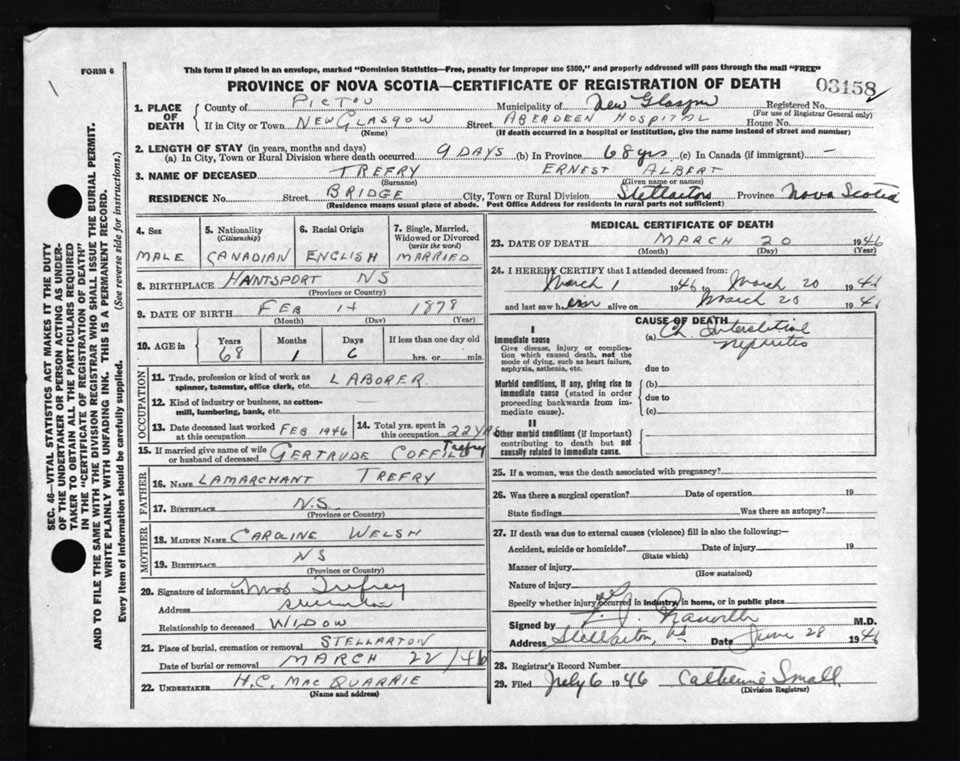 FORM 6
This form if placed in an envelope, marked "Dominion Statistics—Free, penalty for improper use $300," and properly addressed will pass through the mail "FREE"
PROVINCE OF NOVA SCOTIA—CERTIFICATE OF REGISTRATION OF DEATH
03158
1. PLACE OF DEATH
County of PICTOU Municipality of New Glasgow Registered No.
(For use of Registrar General only)
If in City or Town NEW GLASGOW Street ABERDEEN HOSPITAL House No.
(Name) (If death occurred in a hospital or institution, give the name instead of street and number)
2. LENGTH OF STAY (in years, months and days)
(a) In City, Town or Rural Division where death occurred 9 DAYS (b) In Province 68 yrs (c) In Canada (if immigrant) —
3. NAME OF DECEASED TREFRY ERNEST ALBERT
(Surname) (Given name or names)
RESIDENCE No. Street BRIDGE City, Town or Rural Division Stellarton Province Nova Scotia
(Residence means usual place of abode. Post Office Address for residents in rural parts not sufficient)
4. Sex
MALE
5. Nationality
(Citizenship)
CANADIAN
6. Racial Origin
ENGLISH
7. Single, Married, Widowed or Divorced
(write the word)
MARRIED
8. BIRTHPLACE HANTSPORT NS
(Province or Country)
9. DATE OF BIRTH FEB 14 1878
(Month) (Day) (Year)
10. AGE in Years Months Days If less than one day old
68 1 6 hrs. or min.
OCCUPATION
11. Trade, profession or kind of work as LABORER
spinner, teamster, office clerk, etc.
12. Kind of industry or business, as cotton-
mill, lumbering, bank, etc.
13. Date deceased last worked at this occupation FEB 1946
14. Total yrs. spent in this occupation 22 YRS
15. If married give name of wife or husband of deceased GERTRUDE COFFILL Trefry
FATHER
16. NAME LAMARCHANT TREFRY
17. BIRTHPLACE N.S.
(Province or Country)
MOTHER
18. MAIDEN NAME CAROLINE WELSH
19. BIRTHPLACE NS
(Province or Country)
20. Signature of informant Mrs Trefrey
Address Stellarton
Relationship to deceased WIDOW
21. Place of burial, cremation or removal STELLARTON
Date of burial or removal MARCH 22/46
22. UNDERTAKER H.C. MACQUARRIE
(Name and address)
MEDICAL CERTIFICATE OF DEATH
23. DATE OF DEATH MARCH 20 1946
(Month) (Day) (Year)
24. I HEREBY CERTIFY that I attended deceased from:
March 1 1946 to March 20 1946
and last saw him alive on March 20 1946
CAUSE OF DEATH
I
Immediate cause
Give disease, injury or complica-
tion which caused death, not the
mode of dying, such as heart failure,
asphyxia, asthenia, etc.
(a) Ch. Interstitial
Nephritis
due to
Morbid conditions, if any, giving rise to
immediate cause (stated in order
proceeding backwards from im-
mediate cause).
(b)
due to
(c)
II
Other morbid conditions (if important)
contributing to death but not
causally related to immediate cause.
25. If a woman, was the death associated with pregnancy?
26. Was there a surgical operation? Date of operation 19
State findings Was there an autopsy?
27. If death was due to external causes (violence) fill in also the following:—
Accident, suicide or homicide? Date of injury 19
(State which)
Manner of injury
(How sustained)
Nature of injury
Specify whether injury occurred in industry, in home, or in public place
Signed by M.D.
Address Stellarton, NS Date June 28 1946
28. Registrar's Record Number
29. Filed July 6 1946 Catherine Small
(Division Registrar)
SEC. 46—VITAL STATISTICS ACT MAKES IT THE DUTY
OF THE UNDERTAKER OR PERSON ACTING AS UNDER-
TAKER TO OBTAIN ALL THE PARTICULARS REQUIRED
IN THE "CERTIFICATE OF REGISTRATION OF DEATH"
AND TO FILE THE SAME WITH THE DIVISION REGISTRAR WHO SHALL ISSUE THE BURIAL PERMIT.
WRITE PLAINLY WITH UNFADING INK. THIS IS A PERMANENT RECORD.
Every item of information should be carefully supplied. (See reverse side for instructions.)